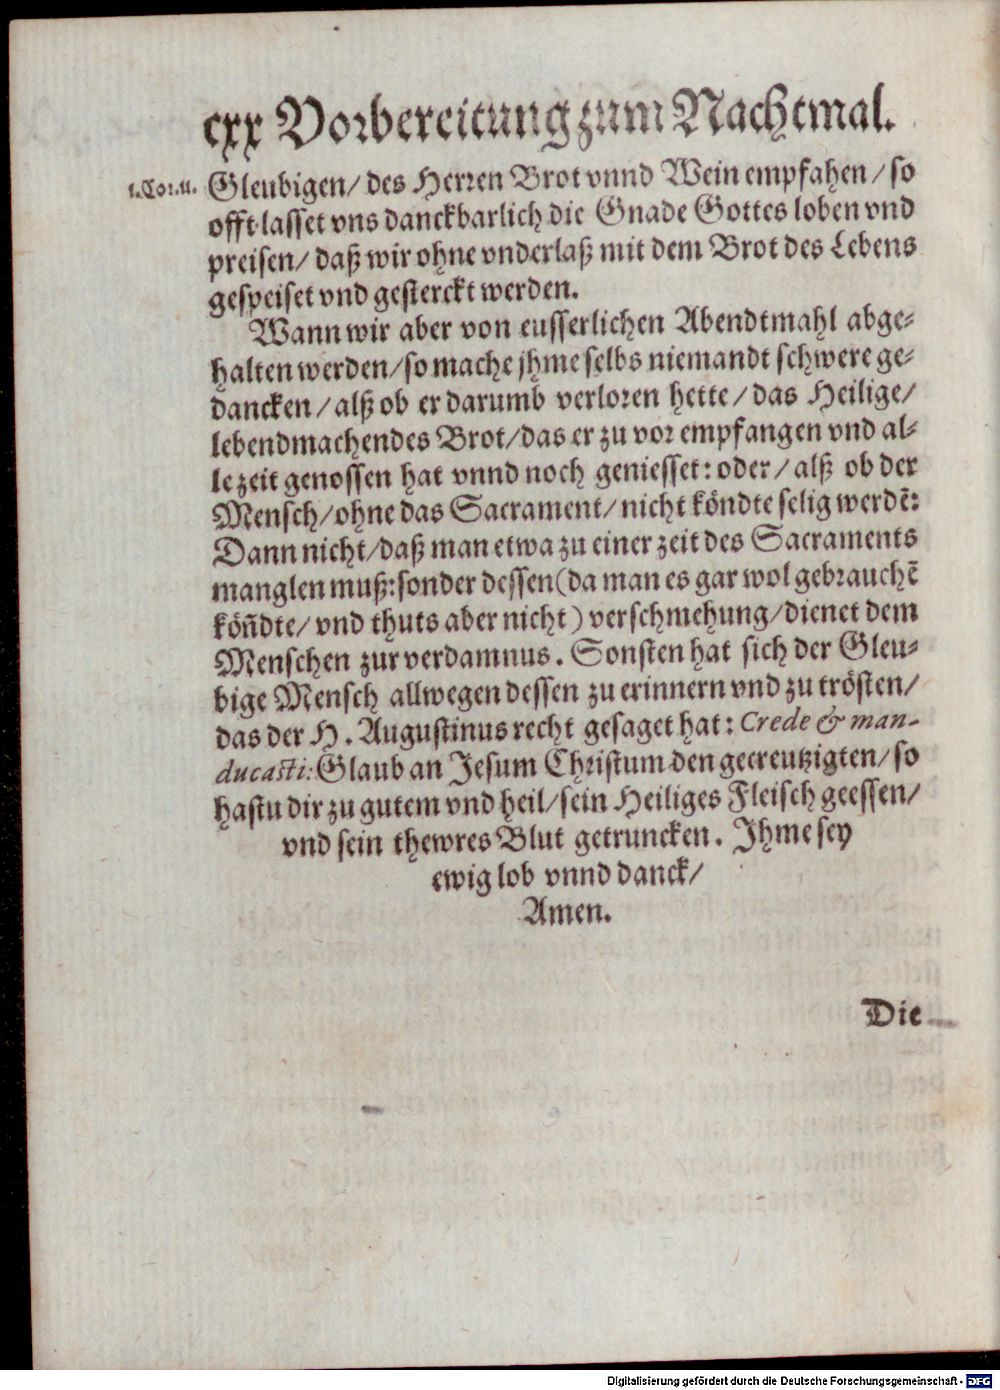 cxx Vorbereitung zum Nachtmal.
1. Cor. 11.
Gleubigen/ des Herren Brot vnnd Wein empfahen/ so
offt lasset vns danckbarlich die Gnade Gottes loben vnd
preisen/ daß wir ohne vnderlaß mit dem Brot des Lebens
gespeiset vnd gesterckt werden.
Wann wir aber von eusserlichen Abendtmahl abge-
halten werden/ so mache jhme selbs niemandt schwere ge-
dancken/ alß ob er darumb verloren hette/ das Heilige/
lebendmachendes Brot/ das er zu vor empfangen vnd al-
le zeit genossen hat vnnd noch geniesset: oder/ alß ob der
Mensch/ ohne das Sacrament/ nicht köndte selig werdẽ:
Dann nicht/ daß man etwa zu einer zeit des Sacraments
manglen muß: sonder dessen (da man es gar wol gebrauchẽ
köñdte/ vnd thuts aber nicht) verschmehung/ dienet dem
Menschen zur verdamnus. Sonsten hat sich der Gleu-
bige Mensch allwegen dessen zu erinnern vnd zu trösten/
das der H. Augustinus recht gesaget hat: Crede & man-
ducasti: Glaub an Jesum Christum den gecreutzigten/ so
hastu dir zu gutem vnd heil/ sein Heiliges Fleisch geessen/
vnd sein thewres Blut getruncken. Jhme sey
ewig lob vnnd danck/
Amen.
Die
Digitalisierung gefördert durch die Deutsche Forschungsgemeinschaft - DFG